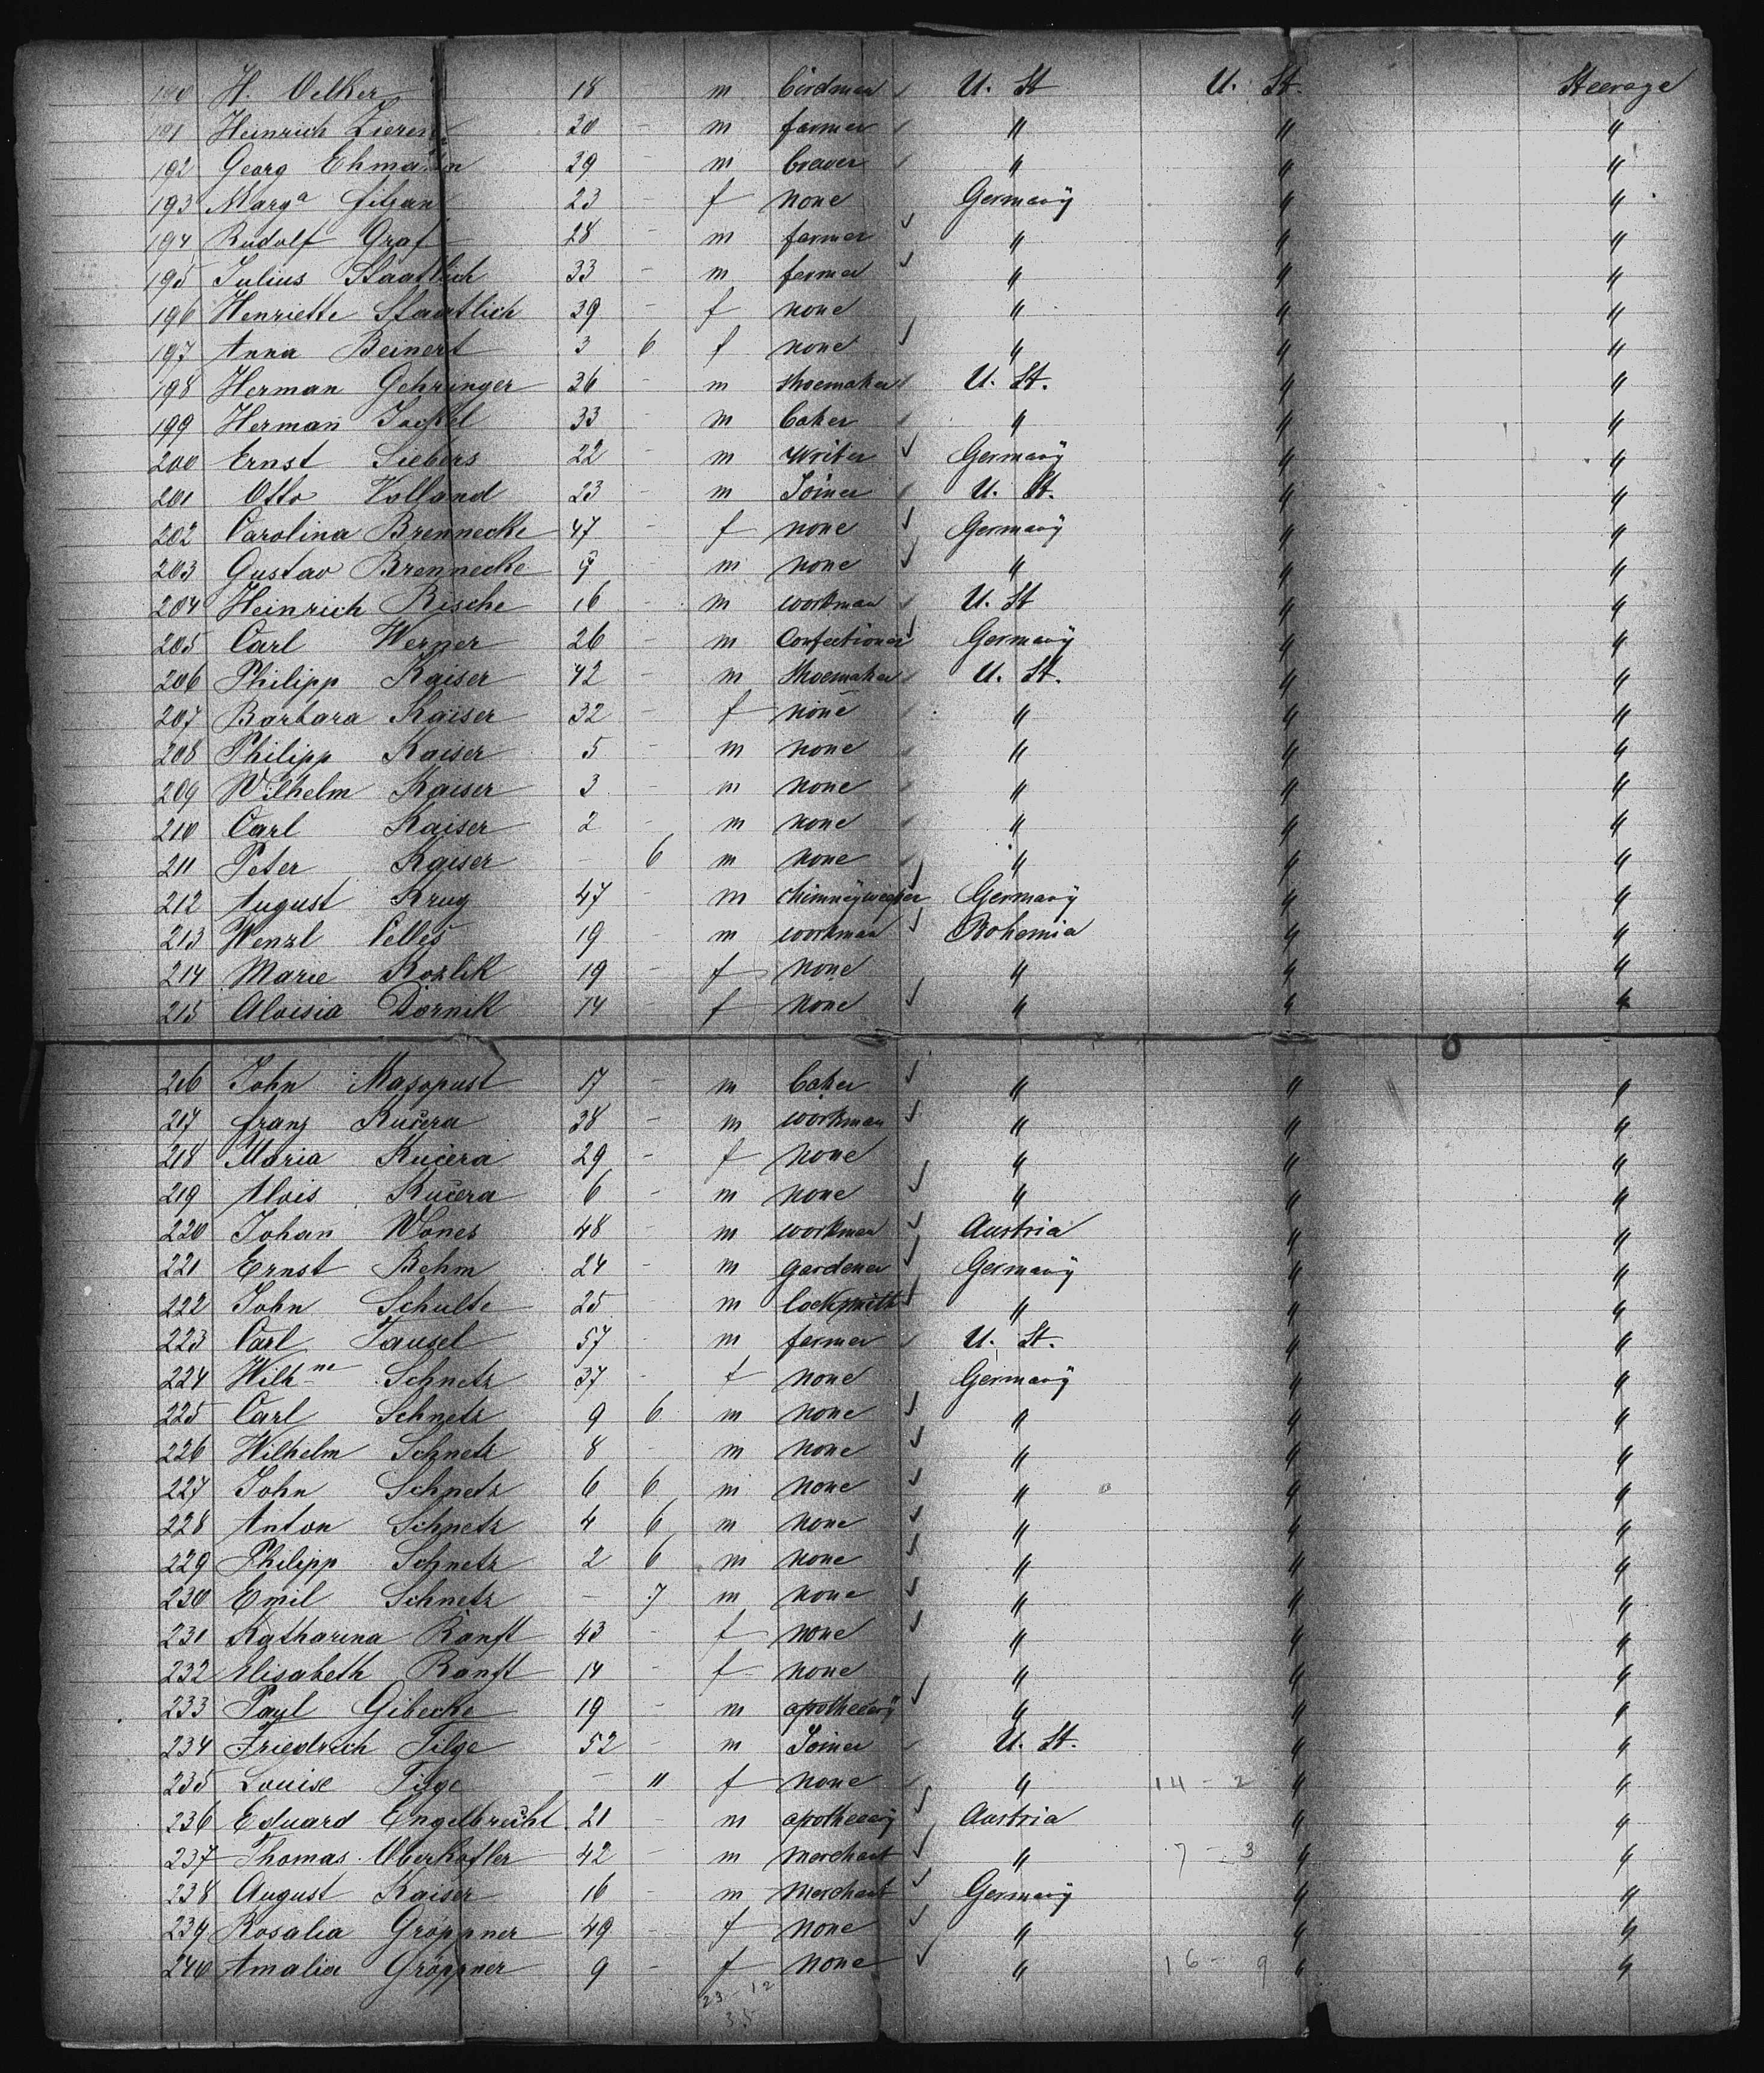 190 H. Oelker 18 m birdman U. St U. St. Steerage
191 Heinrich Zieren 30 - m farmer " " "
192 Georg Ehmann 39 - m braver " " "
193 Marga 23 - f none Germany " "
194 Rudolf Graf 28 - m farmer " " "
195 Julius Staatlich 33 - m farmer " " "
196 Henriette Staatlich 39 - f none " " "
197 Anna Beinert 3 6 f none " " "
198 Herman Gehringer 36 - m shoemaker U. St. " "
199 Herman Jackel 33 m baker " " "
200 Ernst Siebers 22 - m writer Germany " "
201 Otto Volland 23 - m Joiner U. St. " "
202 Carolina Brennecke 47 - f none Germany " "
203 Gustav Brennecke 9 - m none " " "
204 Heinrich Rische 16 - m workman U. St " "
205 Carl Werner 26 - m Confectioner Germany " "
206 Philipp Kaiser 42 - m Shoemaker U. St. " "
207 Barbara Kaiser 32 - f none " " "
208 Philipp Kaiser 5 - m none " " "
209 Wilhelm Kaiser 3 - m none " " "
210 Carl Kaiser 2 - m none " " "
211 Peter Kaiser - 6 m none " " "
212 August Krug 47 - m Germany " "
213 Wenzl Pelles 19 - m workman Bohemia " "
214 Marie Kozlik 19 - f none " " "
215 Aloisia Dornik 14 - f none " " "
216 John Masopust 17 - m baker " " "
217 franz Kučera 38 - m workman " " "
218 Maria Kučera 29 - f none " " "
219 Alois Kučera 6 - m none " " "
220 Johan Wones 48 - m workman Austria " "
221 Ernst Behm 24 - m gardener Germany " "
222 John Schulte 25 - m locksmith " " "
223 Carl Tausel 57 - m farmer U. St. " "
224 Wilhne Schnetz 37 - f none Germany " "
225 Carl Schnetz 9 6 m none " " "
226 Wilhelm Schnetz 8 - m none " " "
227 John Schnetz 6 6 m none " " "
228 Anton Schnetz 4 6 m none " " "
229 Philipp Schnetz 2 6 m none " " "
230 Emil Schnetz - 7 m none " " "
231 Katharina Ranft 43 - f none " " "
232 Elisabeth Ranft 14 - f none " " "
233 Paul Gibecke 19 - m apothecary " " "
234 Friedrich Tilge 52 - m Joiner U. St. " "
235 Louise Tilge - 11 f none " 14 - 2 " "
236 Eduard Engelbrecht 21 - m apothecary Austria " "
237 Thomas Oberkofler 42 - m merchant " 7 - 3 " "
238 August Kaiser 16 - m merchant Germany " "
239 Rosalia Gröppner 49 - f none " " "
240 Amalia Gröppner 9 - f none " 16 - 9 " "
23 - 12
35